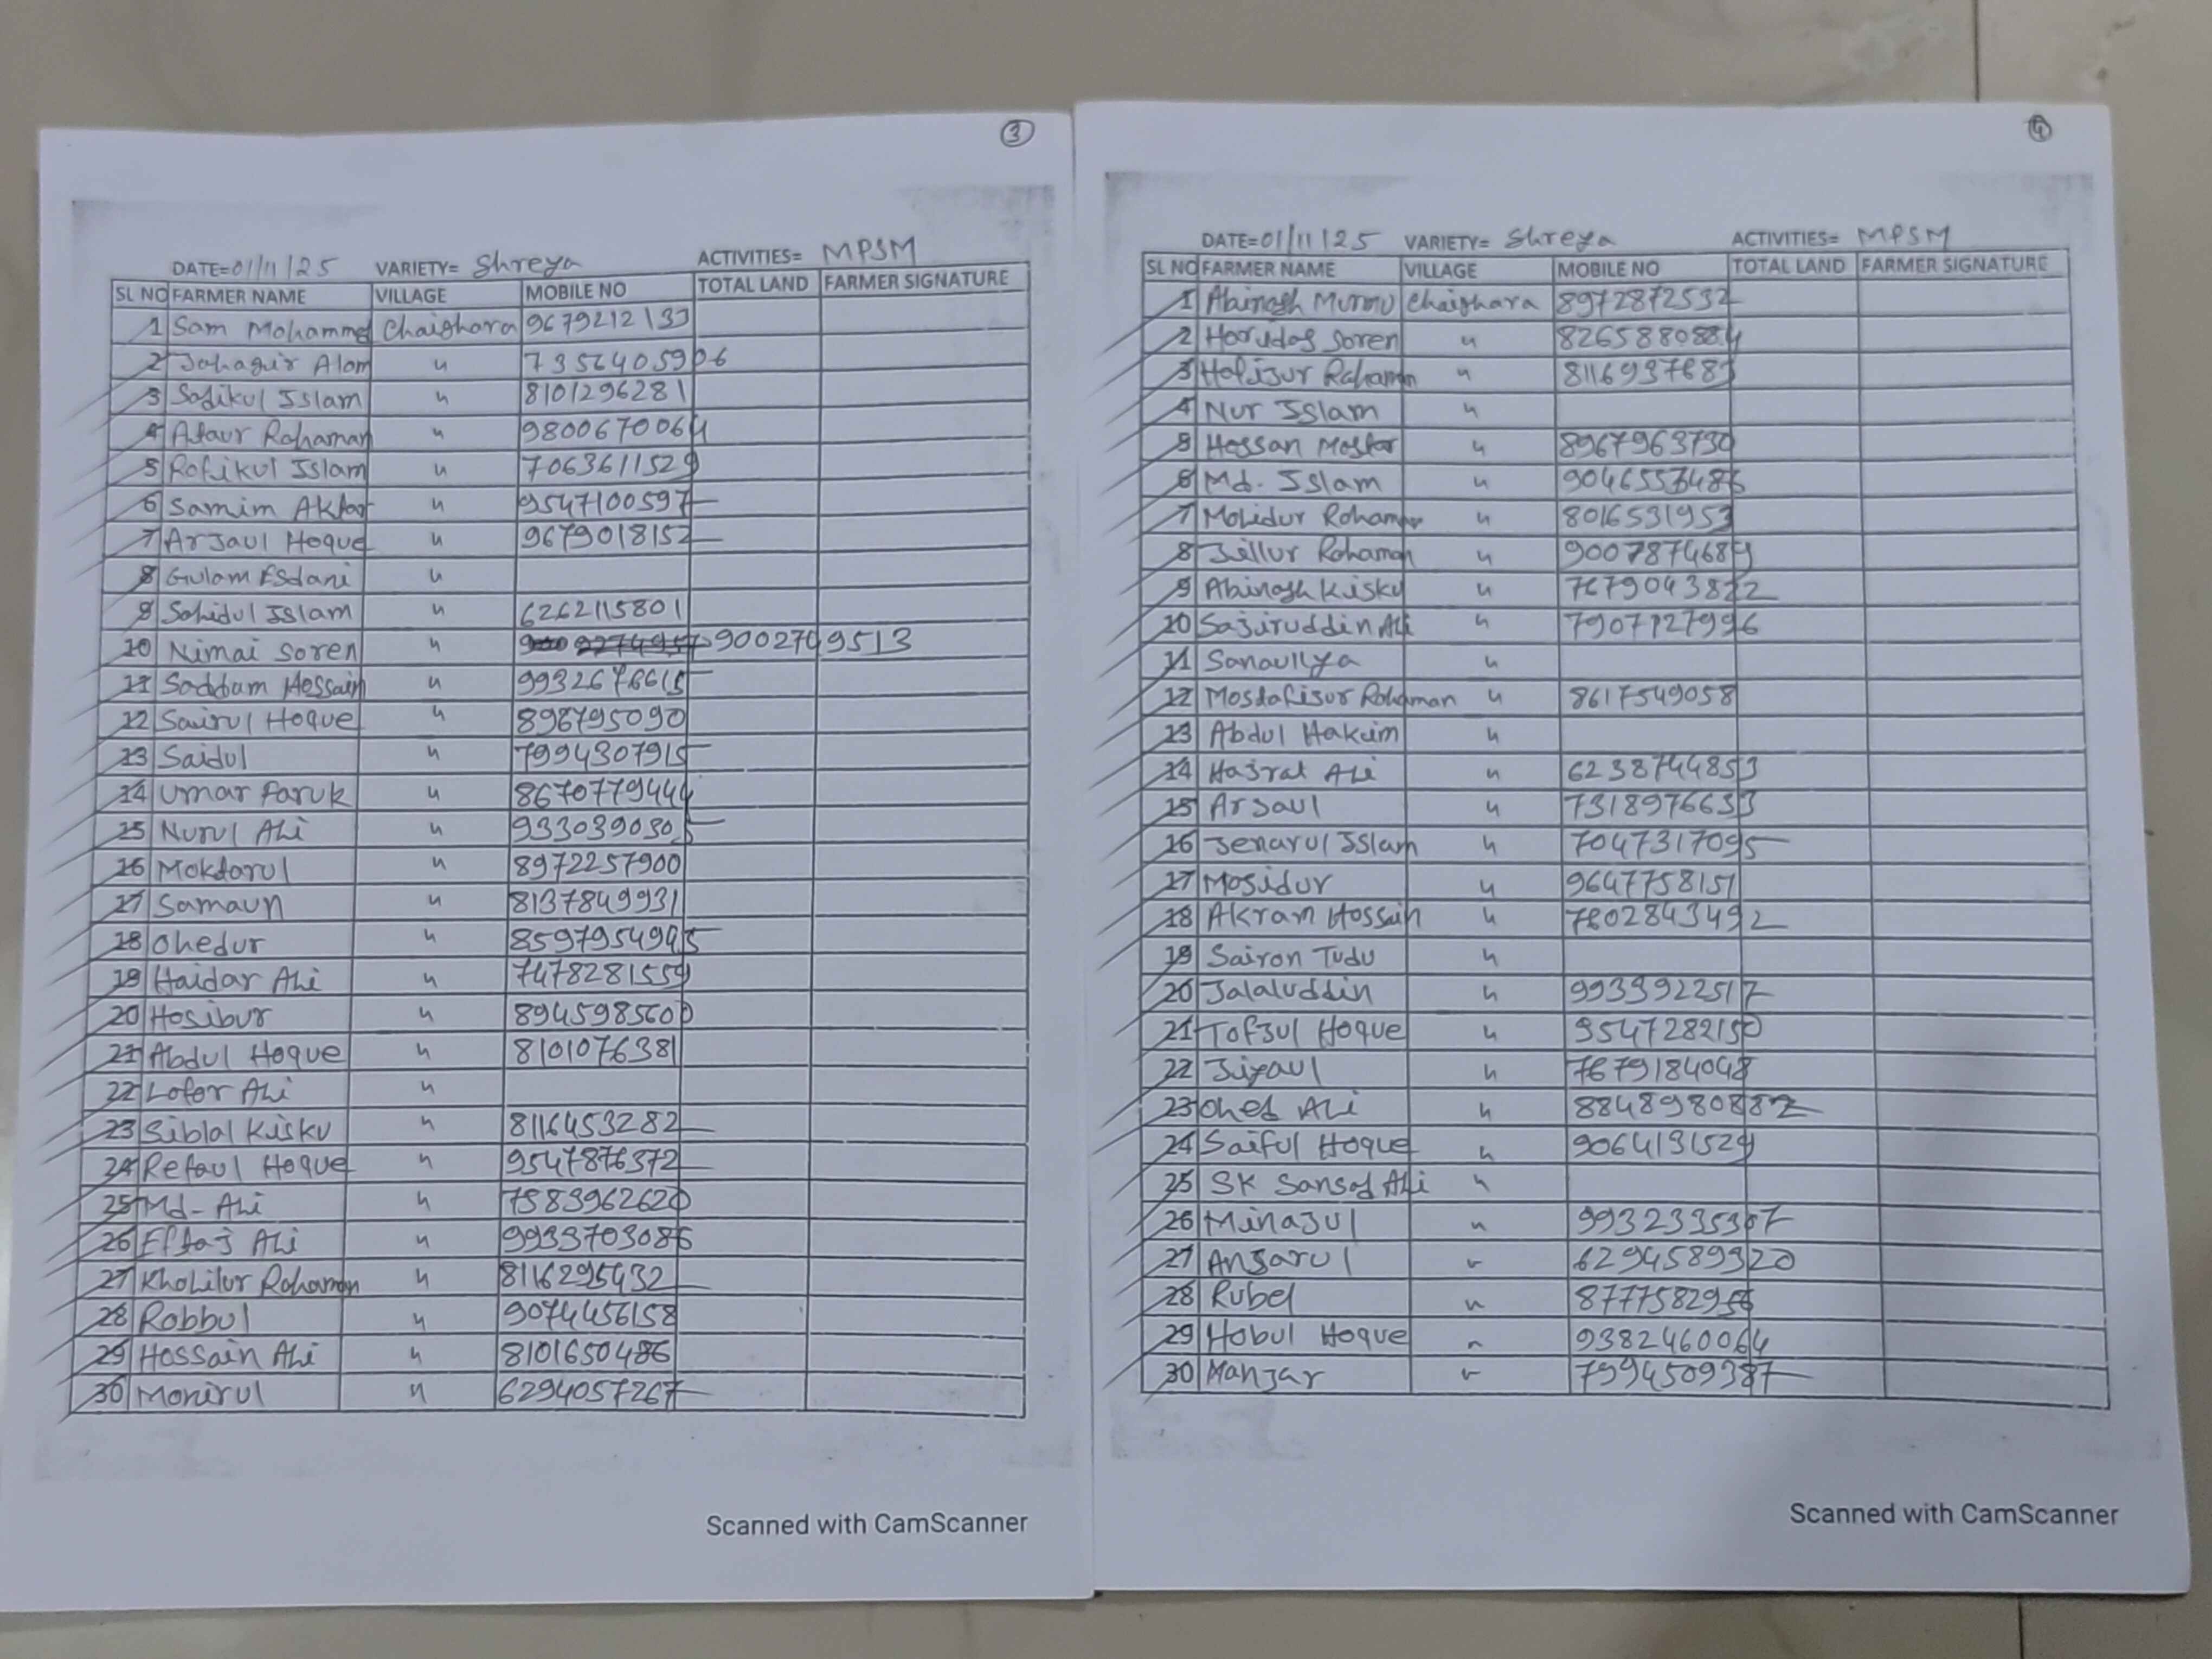 3
DATE=01/11/25 VARIETY= Shreya ACTIVITIES= MPSM
SL NO FARMER NAME VILLAGE MOBILE NO TOTAL LAND FARMER SIGNATURE
1 Sam Mohammed Chaighara 9679212133
2 Jahagir Alam " 7356405906
3 Safikul Islam " 8101296281
4 Ataur Rahaman " 9800670064
5 Rofikul Islam " 7063611529
6 Samim Aktar " 9547100597
7 Arjaul Hoque " 9679018152
8 Gulam Esdani "
9 Sohidul Islam " 6262115801
10 Nimai Soren " 9002749513
11 Saddam Hossain " 9932676615
12 Sairul Hoque " 896795090
13 Saidul " 7994307915
14 Umar Faruk " 8670779444
15 Nurul Ali " 9330390305
16 Mokdarul " 8972257900
17 Samaun " 8137849931
18 Ohedur " 8597954945
19 Haidar Ali " 7478281559
20 Hosibur " 8945985600
21 Abdul Hoque " 8101076381
22 Lofor Ali "
23 Siblal Kisku " 8116453282
24 Refaul Hoque " 9547876372
25 Md- Ali " 7583962620
26 Effaj Ali " 9933703086
27 Kholilur Rohaman " 8116295432
28 Robbul " 9074456158
29 Hossain Ali " 8101650486
30 Monirul " 6294057267
Scanned with CamScanner
4
DATE=01/11/25 VARIETY= Shreya ACTIVITIES= MPSM
SL NO FARMER NAME VILLAGE MOBILE NO TOTAL LAND FARMER SIGNATURE
1 Abinash Murmu Chaighara 8972872532
2 Horudas Soren " 8265880884
3 Hafijur Rahaman " 8116937683
4 Nur Islam "
5 Hossan Mostar " 8967963730
6 Md. Islam " 9046557486
7 Molidur Rohaman " 8016531953
8 Jillur Rohaman " 9007874689
9 Abinash Kisku " 7679043822
10 Sajiruddin Ali " 7907727996
11 Sanaullya "
12 Mosdafijur Rohaman " 8617549058
13 Abdul Hakim "
14 Hajrat Ali " 6238744853
15 Arjaul " 7318976633
16 Jenarul Islam " 7047317095
17 Mosidur " 9647758151
18 Akram Hossain " 7602843492
19 Sairon Tudu "
20 Jalaluddin " 9933922517
21 Tofjul Hoque " 9547282150
22 Jiyaul " 7679184048
23 Ohed Ali " 8848980882
24 Saiful Hoque " 9064131529
25 SK Sansad Ali "
26 Minajul " 9932335307
27 Ansarul " 6294589320
28 Rubel " 8777582956
29 Hobul Hoque " 9382460064
30 Manjar " 7994509387
Scanned with CamScanner